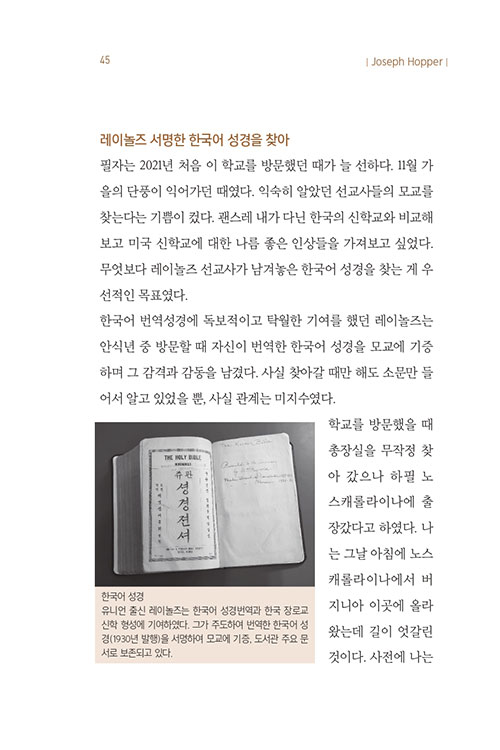 45
| Joseph Hopper |
레이놀즈 서명한 한국어 성경을 찾아
필자는 2021년 처음 이 학교를 방문했던 때가 늘 선하다. 11월 가
을의 단풍이 익어가던 때였다. 익숙히 알았던 선교사들의 모교를
찾는다는 기쁨이 컸다. 괜스레 내가 다닌 한국의 신학교와 비교해
보고 미국 신학교에 대한 나름 좋은 인상들을 가져보고 싶었다.
무엇보다 레이놀즈 선교사가 남겨놓은 한국어 성경을 찾는 게 우
선적인 목표였다.
한국어 번역성경에 독보적이고 탁월한 기여를 했던 레이놀즈는
안식년 중 방문할 때 자신이 번역한 한국어 성경을 모교에 기증
하며 그 감격과 감동을 남겼다. 사실 찾아갈 때만 해도 소문만 들
어서 알고 있었을 뿐, 사실 관계는 미지수였다.
학교를 방문했을 때
총장실을 무작정 찾
아 갔으나 하필 노
스캐롤라이나에 출
장갔다고 하였다. 나
는 그날 아침에 노스
캐롤라이나에서 버
지니아 이곳에 올라
왔는데 길이 엇갈린
것이다. 사전에 나는
THE HOLY BIBLE
셩경젼셔
한국어 성경
유니언 출신 레이놀즈는 한국어 성경번역과 한국 장로교
신학 형성에 기여하였다. 그가 주도하여 번역한 한국어 성
경(1930년 발행)을 서명하여 모교에 기증, 도서관 주요 문
서로 보존되고 있다.